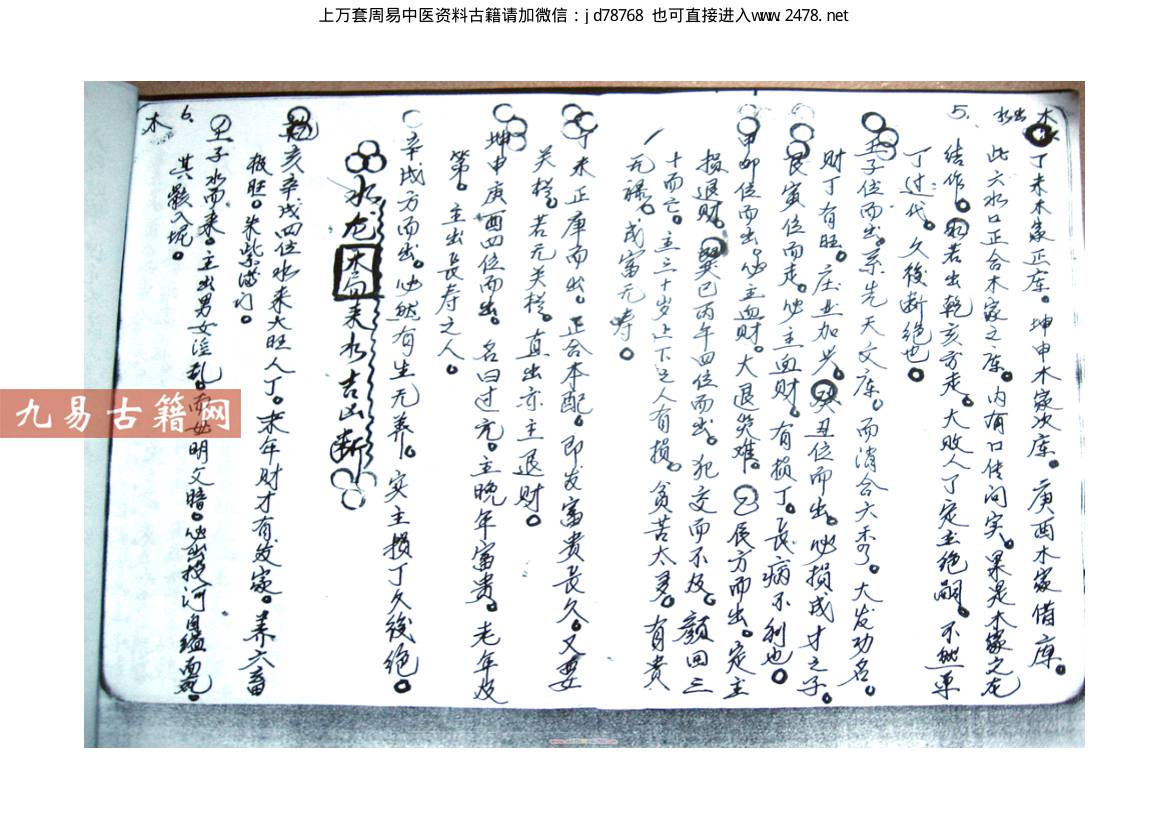 上万套周易中医资料古籍请加微信：jd78768 也可直接进入www.2478.net
木
水出
丁未木家正库。坤申木家次库。庚酉木家借库。
此六水口正合木家之库。内有口传问实。果是木家之龙
5.
结作。水若出乾亥方走。大败人丁定主绝嗣。不然单
丁过代。久後断绝也。
壬子位而出。系先天文库。而消合六禾。大发功名。
财丁有旺。庄业加兴。癸丑位而出。必损成才之子。
艮寅位而走。必主血财。有损丁。长病不利也。
甲卯位而出。必主血财。大退災难。乙辰方而出。定主
损退财。巽巳丙午四位而出。犯交而不及。颜回三
十而亡。主三十岁上下之人有损。贫苦太多。有貴
无禄。或富无寿。
丁未正庫而出。正合本配。即发富贵长久。又要
关栏。若无关栏。直出亦主退财。
坤申庚酉四位而出。名曰过亢。主晚年富贵。老年及
第。主出长寿之人。
辛戌方而出。必然有生无养。实主损丁久後绝。
水龙木局来水吉凶断
乾亥辛戌四位水来大旺人丁。来年财才有发家。养六畜
极旺。朱紫满门。
6.
壬子水而来。主出男女淫乱。而她明文暗。必出投河自缢而死。
其骸入坭。
木
九易古籍网